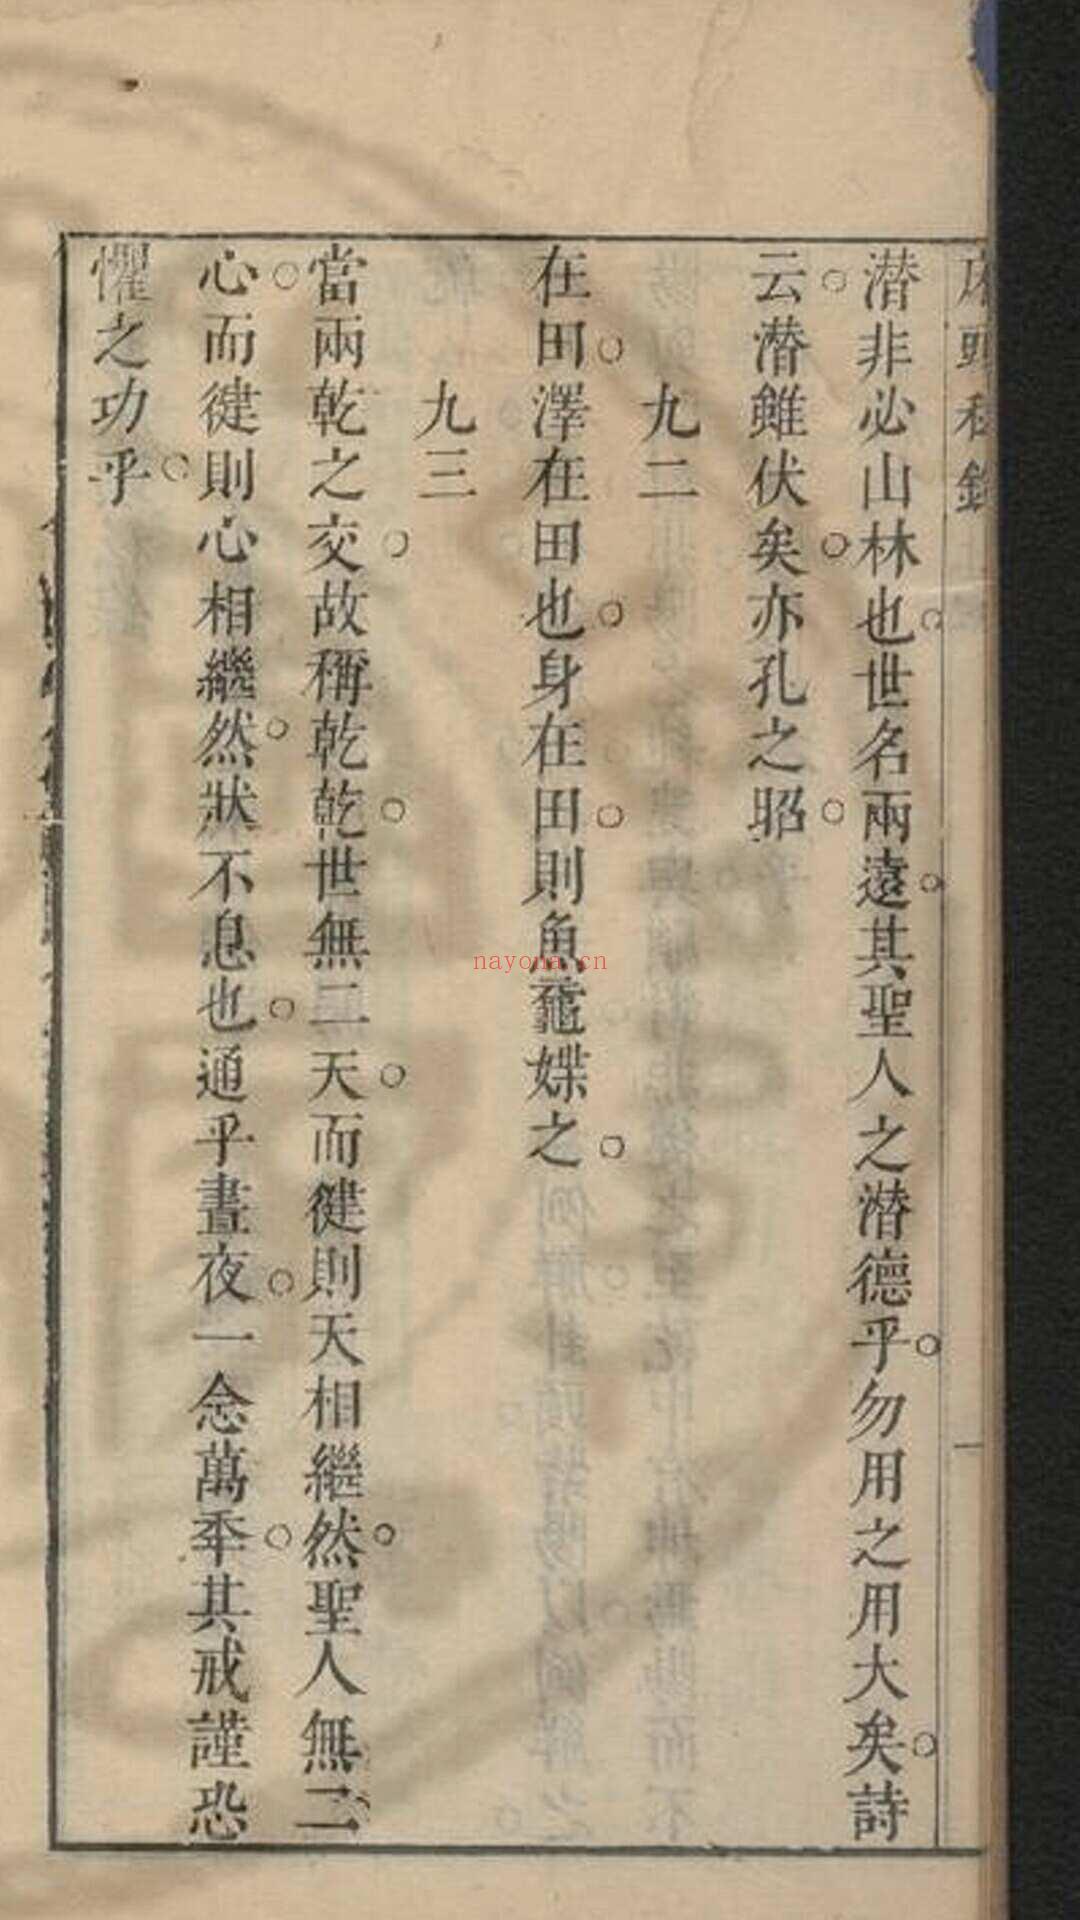 潛非必山林也世名兩遠其聖人之潛德乎勿用之用大矣詩
云潛雖伏矣亦孔之昭
九二
在田澤在田也身在田則魚鼈媟之
九三
當兩乾之交故稱乾乾世無二天而健則天相繼然聖人無二
心而健則心相繼然狀不息也通乎晝夜一念萬年其戒謹恐
懼之功乎
nayona.cn